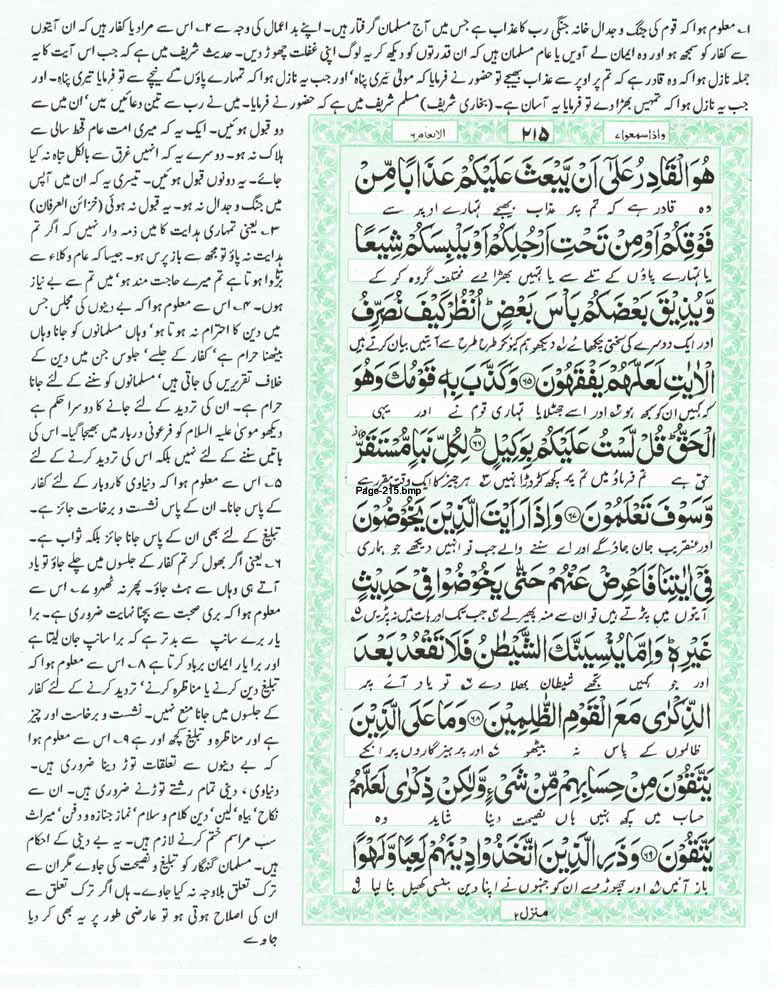 ۱۔ معلوم ہوا کہ قوم کی جنگ و جدال خانہ جنگی رب کا عذاب ہے جس میں آج مسلمان گرفتار ہیں۔ اپنے بد اعمال کی وجہ سے ۲۔ اس سے مراد یا کفار ہیں کہ ان آیتوں
سے کفار کو سمجھ ہو اور وہ ایمان لے آویں یا عام مسلمان ہیں کہ ان قدرتوں کو دیکھ کر یہ لوگ اپنی غفلت چھوڑ دیں۔ حدیث شریف میں ہے کہ جب اس آیت کا یہ
جملہ نازل ہوا کہ وہ قادر ہے کہ تم پر اوپر سے عذاب بھیجے تو حضور نے فرمایا کہ مولیٰ تیری پناہ‘ اور جب یہ نازل ہوا کہ تمہارے پاؤں کے نیچے سے تو فرمایا تیری پناہ۔ اور
جب یہ نازل ہوا کہ تمہیں بھڑا دے تو فرمایا یہ آسان ہے۔ (بخاری شریف) مسلم شریف میں ہے کہ حضور نے فرمایا۔ میں نے رب سے تین دعائیں کیں‘ ان میں سے
دو قبول ہوئیں۔ ایک یہ کہ میری امت عام قحط سالی سے
ہلاک نہ ہو۔ دوسرے یہ کہ انہیں غرق سے بالکل تباہ نہ کیا
جائے۔ یہ دونوں قبول ہوئیں۔ تیسری یہ کہ ان میں آپس
میں جنگ و جدال نہ ہو۔ یہ قبول نہ ہوئی (خزائن العرفان)
۳۔ یعنی تمہاری ہدایت کا میں ذمہ دار نہیں کہ اگر تم
ہدایت نہ پاؤ تو مجھ سے باز پرس ہو۔ جیسا کہ عام وکلاء سے
ہوا کرتا ہے تم میرے حاجت مند ہو‘ میں تم سے بے نیاز
ہوں۔ ۴۔ اس سے معلوم ہوا کہ بے دینوں کی مجلس جس
میں دین کا احترام نہ ہوتا ہو‘ وہاں مسلمانوں کو جانا وہاں
بیٹھنا حرام ہے‘ کفار کے جلسے‘ جلوس جن میں دین کے
خلاف تقریریں کی جاتی ہیں‘ مسلمانوں کو سننے کے لئے جانا
حرام ہے۔ ان کی تردید کے لئے جانے کا دوسرا حکم ہے
دیکھو موسیٰ علیہ السلام کو فرعونی دربار میں بھیجا گیا۔ اس کی
باتیں سننے کے لئے نہیں بلکہ اس کی تردید کرنے کے لئے
۵۔ اس سے معلوم ہوا کہ دنیاوی کاروبار کے لئے کفار
کے پاس جانا۔ ان کے پاس نشست و برخاست جائز ہے۔
تبلیغ کے لئے بھی ان کے پاس جانا جائز بلکہ ثواب ہے۔
۶۔ یعنی اگر بھول کر تم کفار کے جلسوں میں چلے جاؤ تو یاد
آتے ہی وہاں سے ہٹ جاؤ۔ پھر نہ ٹھہرو ۷۔ اس سے
معلوم ہوا کہ بری صحبت سے بچنا نہایت ضروری ہے۔ برا
یار برے سانپ سے بدتر ہے کہ برا سانپ جان لیتا ہے
اور برا یار ایمان برباد کرتا ہے ۸۔ اس سے معلوم ہوا کہ
تبلیغ دین کرنے یا مناظرہ کرنے‘ تردید کرنے کے لئے کفار
کے جلسوں میں جانا منع نہیں۔ نشست و برخاست اور چیز
ہے اور مناظرہ و تبلیغ کچھ اور ہے ۹۔ اس سے معلوم ہوا
کہ بے دینوں سے تعلقات توڑ دینا ضروری ہیں۔
دنیاوی‘ دینی تمام رشتے توڑنے ضروری ہیں۔ ان سے
نکاح‘ بیاہ‘ لین‘ دین کلام و سلام‘ نماز جنازہ و دفن‘ میراث
سب مراسم ختم کرنے لازم ہیں۔ یہ بے دینی کے احکام
ہیں۔ مسلمان گنہگار کو تبلیغ و نصیحت کی جاوے مگر ان سے
ترک تعلق بلاوجہ نہ کیا جاوے۔ ہاں اگر ترک تعلق سے
ان کی اصلاح ہوتی ہو تو عارضی طور پر یہ بھی کر دیا
جاوے
واذا سمعوا ۷ ۲۱۵ الانعام ۶
هُوَ الْقَادِرُ عَلٰٓى اَنْ يَّبْعَثَ عَلَيْكُمْ عَذَابًا مِّنْ
وہ قادر ہے کہ تم پر عذاب بھیجے تمہارے اوپر سے
فَوْقِكُمْ اَوْ مِنْ تَحْتِ اَرْجُلِكُمْ اَوْ يَلْبِسَكُمْ شِيَعًا
یا تمہارے پاؤں کے تلے سے یا تمہیں بھڑا دے مختلف گروہ کر کے
وَّيُذِيْقَ بَعْضَكُمْ بَاْسَ بَعْضٍ اُنْظُرْ كَيْفَ نُصَرِّفُ
اور ایک دوسرے کی سختی چکھائے ۱ دیکھو ہم کیونکر طرح طرح سے آیتیں بیان کرتے ہیں
الْاٰيٰتِ لَعَلَّهُمْ يَفْقَهُوْنَ ۶۵ وَكَذَّبَ بِهٖ قَوْمُكَ وَهُوَ
کہ کہیں ان کو سمجھ ہو ۲ اور اسے جھٹلایا تمہاری قوم نے اور یہی
الْحَقُّ قُلْ لَّسْتُ عَلَيْكُمْ بِوَكِيْلٍ ۶۶ لِكُلِّ نَبَاٍ مُّسْتَقَرٌّ
حق ہے تم فرماؤ میں تم پر کچھ کڑوڑا نہیں ۳ ہر چیز کا ایک وقت مقرر ہے
Page-215.bmp
وَّسَوْفَ تَعْلَمُوْنَ ۶۷ وَاِذَا رَاَيْتَ الَّذِيْنَ يَخُوْضُوْنَ
اور عنقریب جان جاؤ گے اور اے سننے والے جب تو انہیں دیکھے جو ہماری
فِيْٓ اٰيٰتِنَا فَاَعْرِضْ عَنْهُمْ حَتّٰى يَخُوْضُوْا فِيْ حَدِيْثٍ
آیتوں میں پڑتے ہیں تو ان سے منہ پھیر لے ۴ جب تک اور بات میں نہ پڑیں ۵
غَيْرِهٖ وَاِمَّا يُنْسِيَنَّكَ الشَّيْطٰنُ فَلَا تَقْعُدْ بَعْدَ
اور جو کہیں تجھے شیطان بھلا دے ۶ تو یاد آئے پر
الذِّكْرٰى مَعَ الْقَوْمِ الظّٰلِمِيْنَ ۶۸ وَمَا عَلَى الَّذِيْنَ
ظالموں کے پاس نہ بیٹھو ۷ اور پرہیزگاروں پر انکے
يَتَّقُوْنَ مِنْ حِسَابِهِمْ مِّنْ شَيْءٍ وَّلٰكِنْ ذِكْرٰى لَعَلَّهُمْ
حساب میں کچھ نہیں ہاں نصیحت دینا شاید وہ
يَتَّقُوْنَ ۶۹ وَذَرِ الَّذِيْنَ اتَّخَذُوْا دِيْنَهُمْ لَعِبًا وَّلَهْوًا
باز آئیں ۸ اور چھوڑ دے ان کو جنہوں نے اپنا دین ہنسی کھیل بنا لیا ۹
منزل ۲